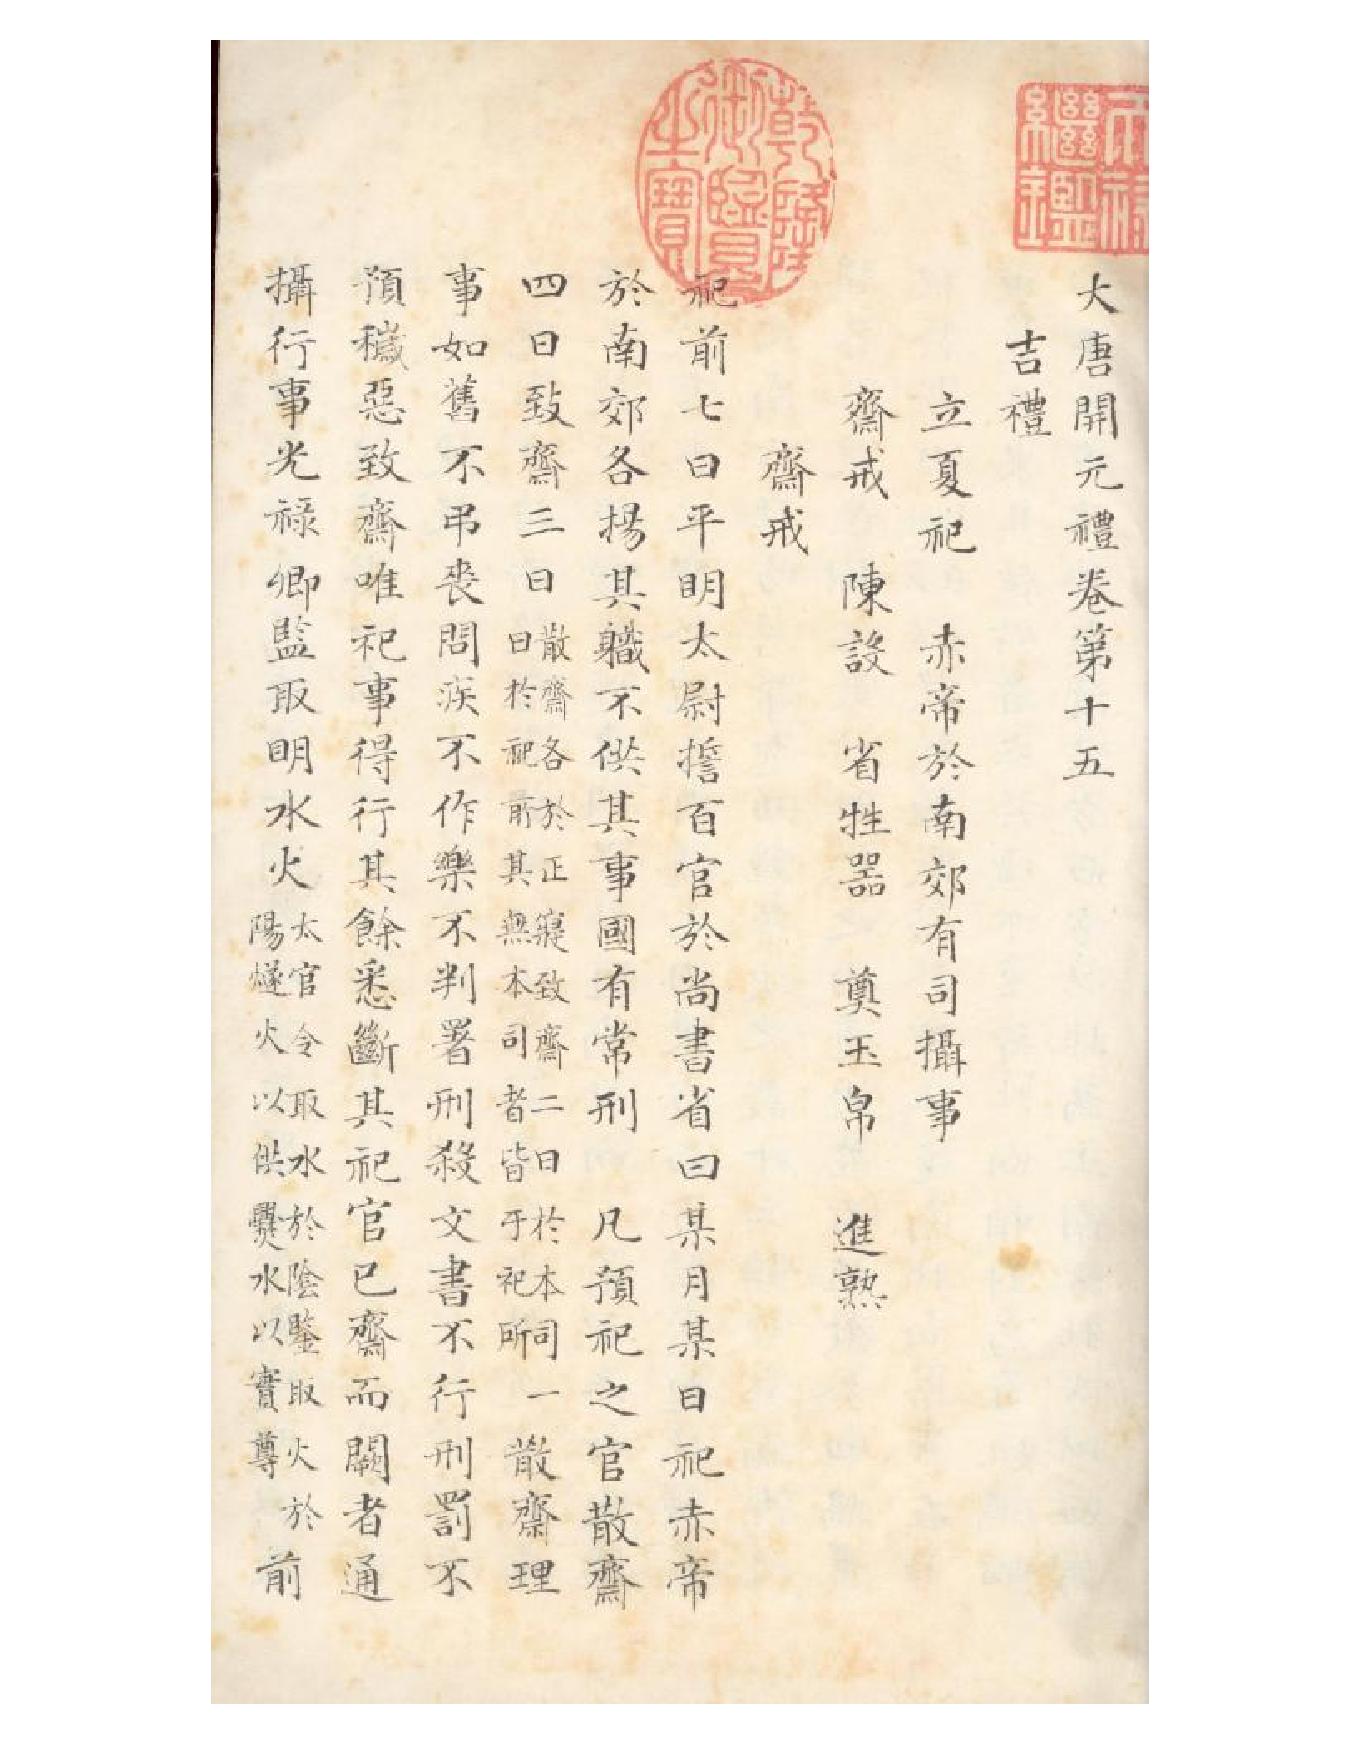 天祿繼鑑
乾隆御覽之寶
大唐開元禮卷第十五
吉禮
立夏祀 赤帝於南郊有司攝事
齋戒 陳設 省牲器 奠玉帛 進熟
齋戒
祀前七日平明太尉誓百官於尚書省曰某月某日祀赤帝
於南郊各揚其職不供其事國有常刑 凡預祀之官散齋
四日致齋三日散齋各於正寢致齋二日於本司一日於祀前其無本司者皆于祀所散齋理
事如舊不弔喪問疾不作樂不判署刑殺文書不行刑罰不
預穢惡致齋唯祀事得行其餘悉斷其祀官已齋而闕者通
攝行事光祿卿監取明水火太官令取水於陰鑒取火於陽燧火以供爨水以實尊前